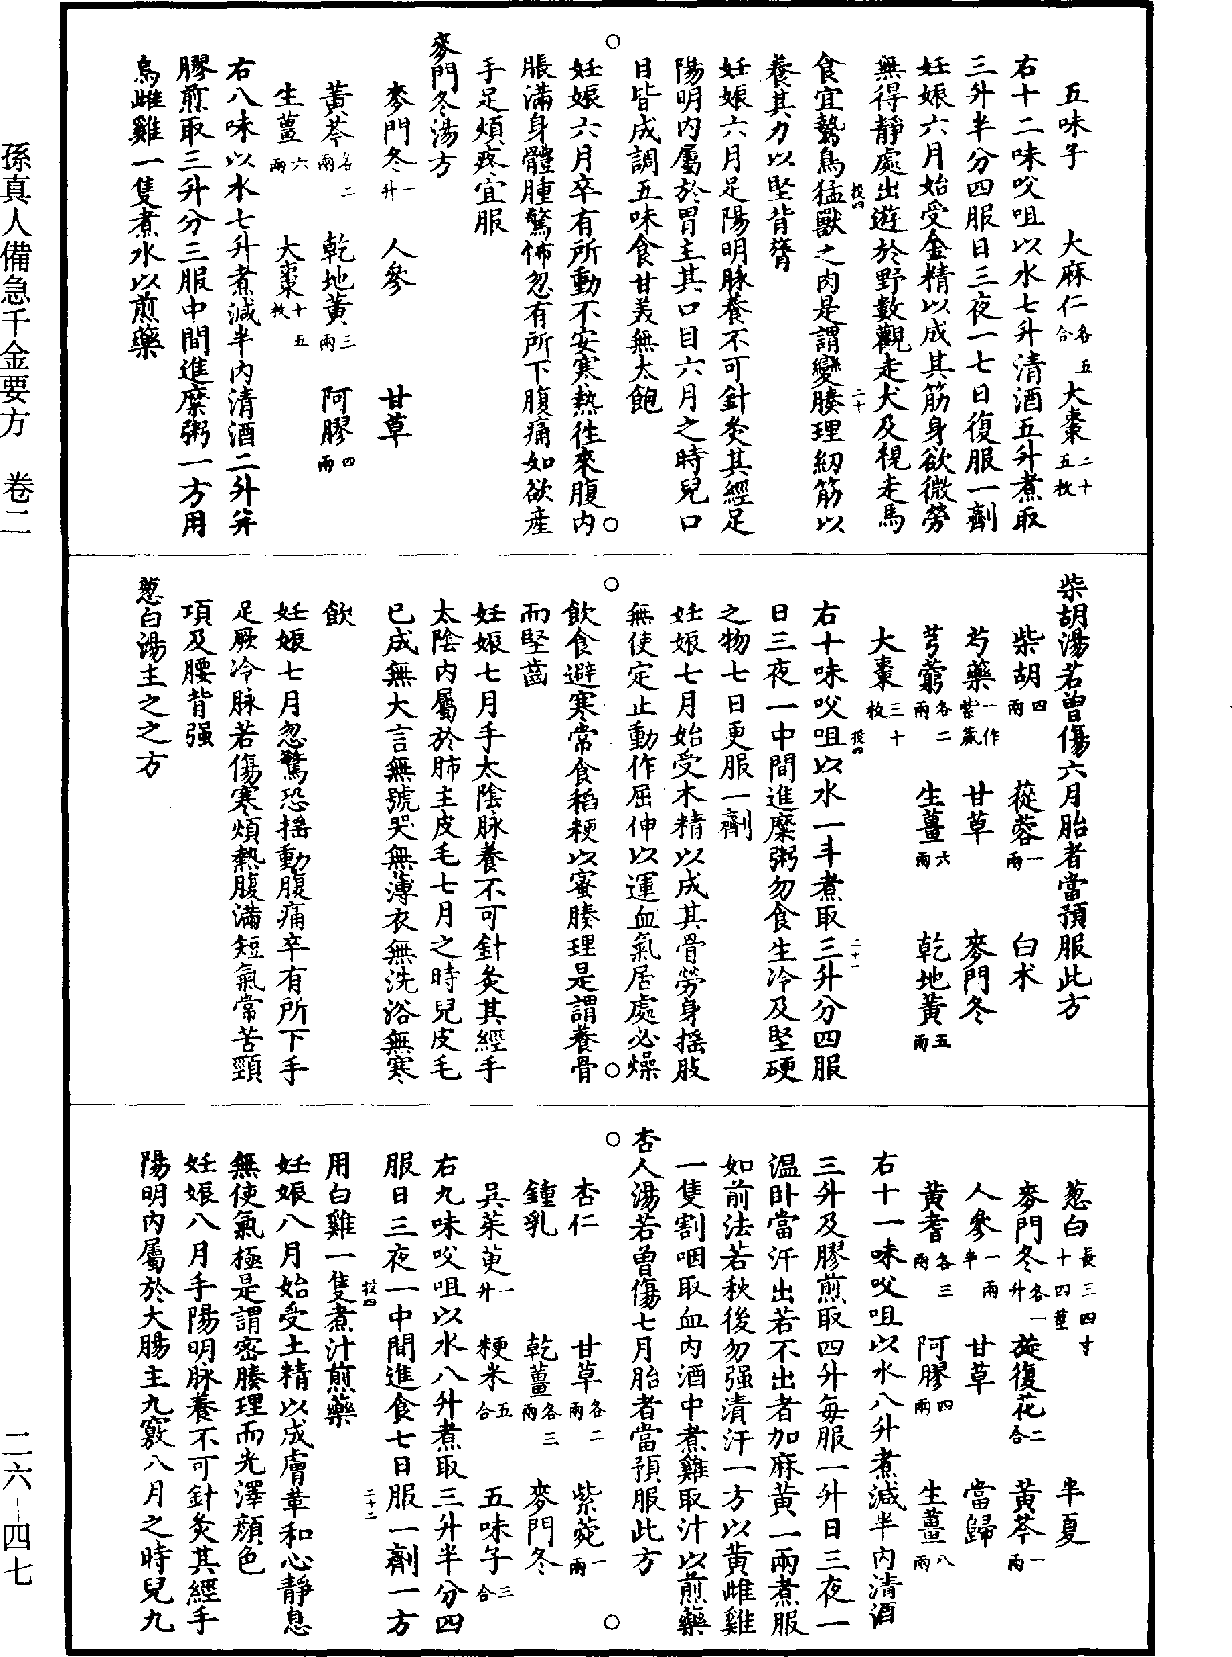 五味子　大麻仁各五合　大棗二十五枚
右十二味㕮咀以水七升清酒五升煮取
三升半分四服日三夜一七日復服一劑
妊娠六月始受金精以成其筋身欲微勞
無得靜處出遊於野數觀走犬及視走馬
食宜鷙鳥猛獸之肉是謂變腠理紉筋以
養其力以堅背膂
妊娠六月足陽明脉養不可針灸其經足
陽明内屬於胃主其口目六月之時兒口
目皆成調五味食甘美無太飽
妊娠六月卒有所動不安寒熱往來腹内
脹滿身體腫驚怖忽有所下腹痛如欲産
手足煩疼宜服
麥門冬湯方
麥門冬一升　人參　甘草
黄芩各二兩　乾地黄三兩　阿膠四兩
生薑六兩　大棗十五枚
右八味以水七升煮減半内清酒二升并
膠煎取三升分三服中間進糜粥一方用
烏雌雞一隻煮水以煎藥
柴胡湯若曾傷六月胎者當預服此方
柴胡四兩　蓯蓉一兩　白术
芍藥一作紫葳　甘草　麥門冬
芎藭各二兩　生薑六兩　乾地黄五兩
大棗三十枚
右十味㕮咀以水一斗煮取三升分四服
日三夜一中間進糜粥勿食生冷及堅硬
之物七日更服一劑
妊娠七月始受木精以成其骨勞身摇肢
無使定止動作屈伸以運血氣居處必燥
飲食避寒常食稻粳以蜜腠理是謂養骨
而堅齒
妊娠七月手太陰脉養不可針灸其經手
太陰内屬於肺主皮毛七月之時兒皮毛
已成無大言無號哭無薄衣無洗浴無寒
飲
妊娠七月忽驚恐摇動腹痛卒有所下手
足厥冷脉若傷寒煩熱腹滿短氣常苦頸
項及腰背强
葱白湯主之之方
葱白長三四寸十四莖　半夏
麥門冬各一升　旋復花二合　黄芩一兩
人參一兩半　甘草　當歸
黄耆各三兩　阿膠四兩　生薑八兩
右十一味㕮咀以水八升煮減半内清酒
三升及膠煎取四升每服一升日三夜一
温卧當汗出若不出者加麻黄一兩煮服
如前法若秋後勿强漬汗一方以黄雌雞
一隻割咽取血内酒中煮雞取汁以煎藥
杏人湯若曾傷七月胎者當預服此方
杏仁　甘草各二兩　紫菀一兩
鍾乳　乾薑各三兩　麥門冬
吴茱萸一升　粳米五合　五味子三合
右九味㕮咀以水八升煮取三升半分四
服日三夜一中間進食七日服一劑一方
用白雞一隻煮汁煎藥
妊娠八月始受土精以成膚革和心靜息
無使氣極是謂密腠理而光澤顔色
妊娠八月手陽明脉養不可針灸其經手
陽明内屬於大腸主九竅八月之時兒九
孫真人備急千金要方　卷二
二六-四七